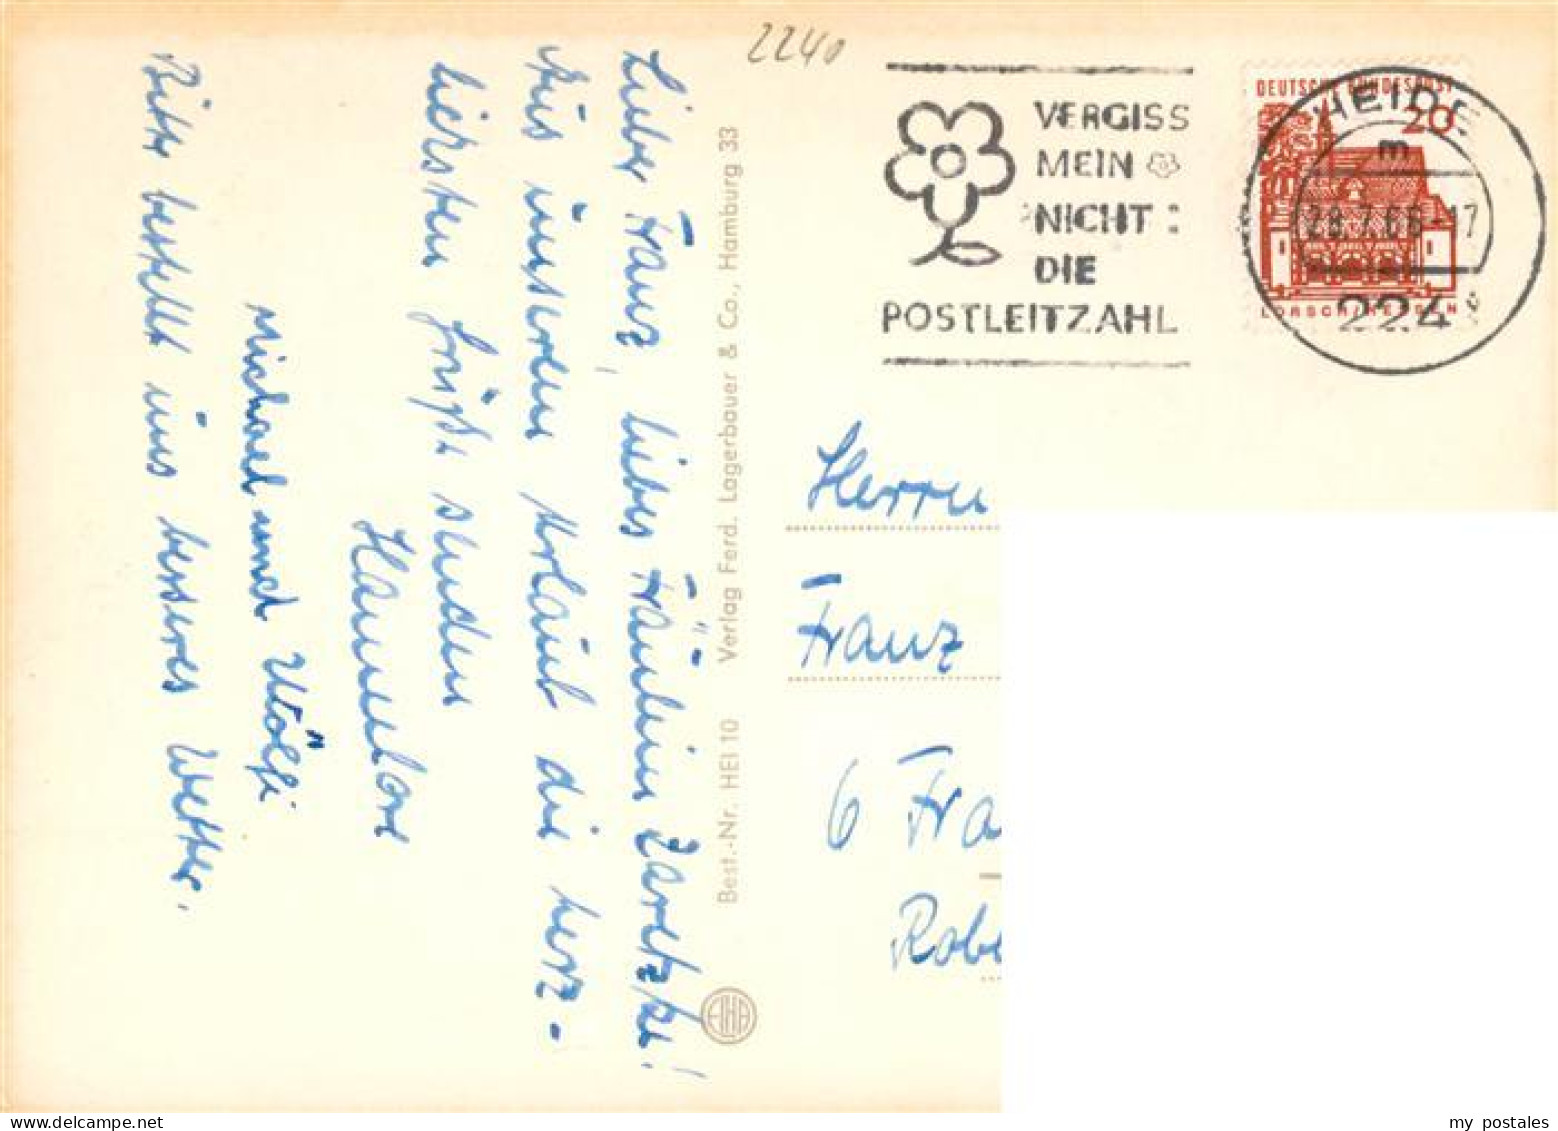 2240
Lieber Franz, liebes Fräulein Zaretzke!
Aus unserem Urlaub die herz-
lichsten Grüße senden
Hannelore
Michael und Wölfi
Bitte bestellt uns besseres Wetter.
Best.-Nr. HEI 10 Verlag Ferd. Lagerbauer & Co., Hamburg 33
VERGISS
MEIN
NICHT:
DIE
POSTLEITZAHL
DEUTSCHE BUNDESPOST
20
LORSCH/HESSEN
HEIDE
m
28.7.66-17
224
Herrn
Franz
6 Fra
Robe
my postales